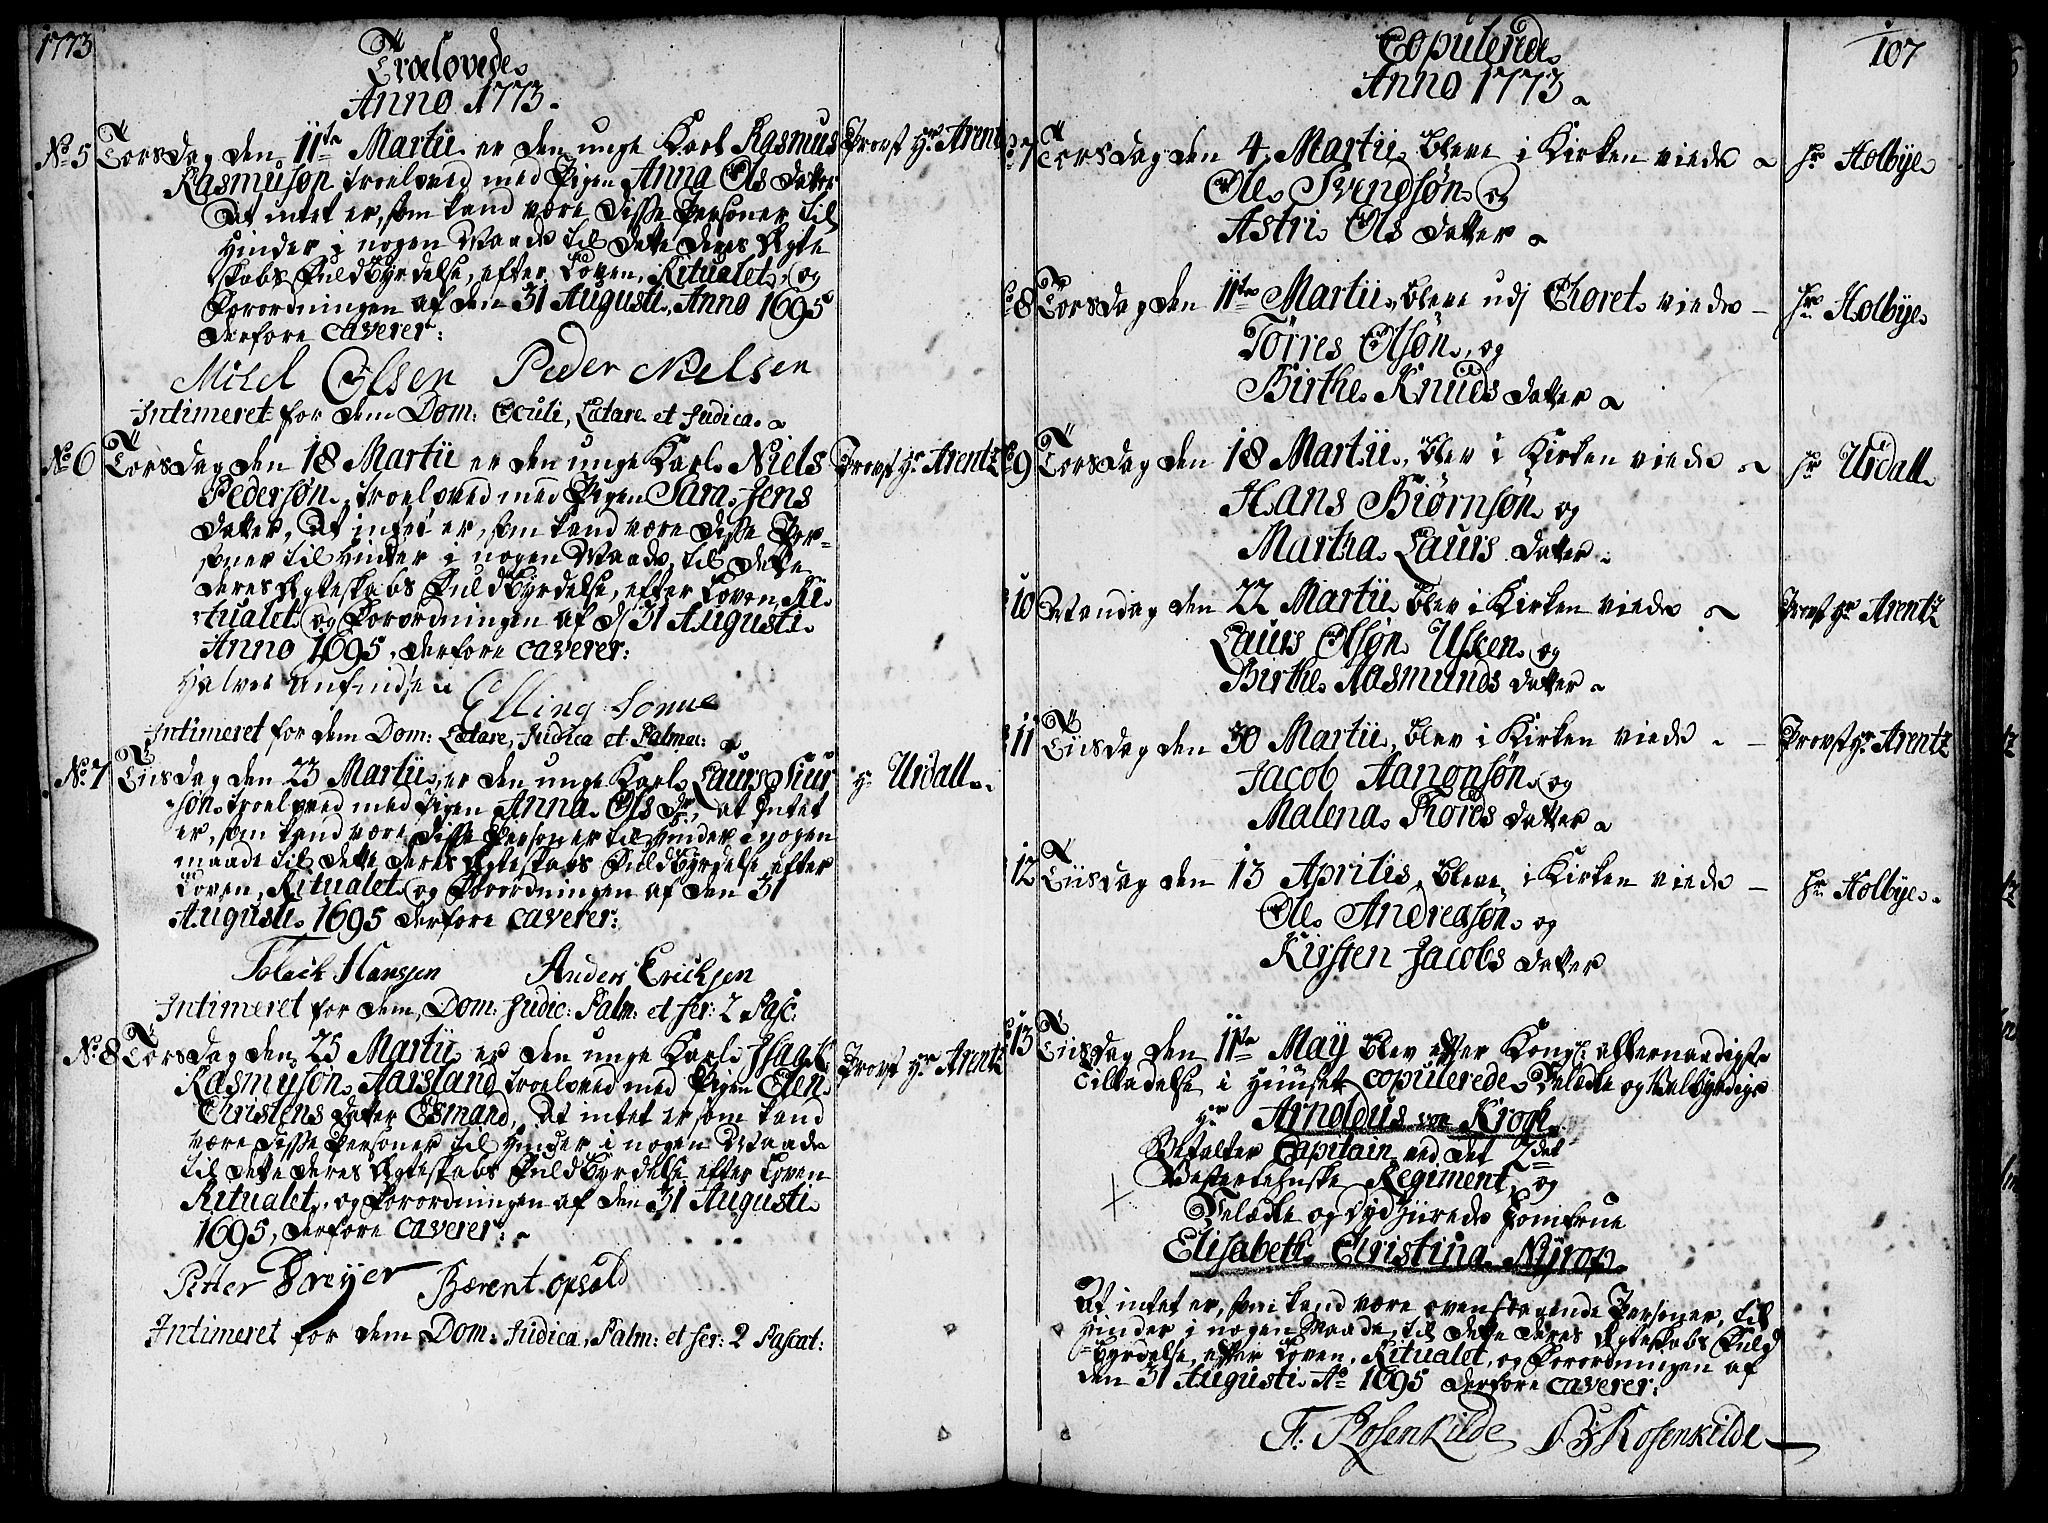 1773
Troelovede
Anno 1773.
No 5 Torsdag den 11te Martii er den unge Karl Rasmus Provst Hr Arentz
Rasmusøn troeloved med Pigen Anna Ols datter
At intet er, som kand være disse Personer til
Hinder i nogen Maade til dette deres Ægte
skabs Fuldbyrdelse, efter Loven, Ritualet, og
Forordningen af den 31 Augusti, Anno 1695
derfore caverer:
Michel Olsen Peder Nielsen
Intimeret for dem Dom: Oculi, Lætare et Judica.
No 6 Torsdag den 18 Martii er den unge Karl Niels Provst Hr Arentz
Pedersøn, troeloved med Pigen Sara Jens
datter, At intet er, som kand være disse Per-
soner til Hinder i nogen Maade, til dette
deres Ægteskabs Fuldbyrdelse, efter Loven, Ri-
tualet, og Forordningen af d/ 31 Augusti
Anno 1695, derfore caverer:
Elling
Intimeret for dem Dom: Lætare, Judica et Palmar:
No 7 Tiisdag den 23 Martii, er den unge Karl Laurs Siur Hr Urdall
søn troeloved med Pigen Anna Ols dr, at Intet
er, som kand være disse Personer til Hinder i nogen
maade til dette deres Ægteskabs Fuldbyrdelse efter
Loven, Ritualet, og Forordningen af den 31
Augusti, 1695 derfore caverer:
Hansen Anders Ericksen
Intimeret for dem, Dom: Judic: Palm: et fer: 2 Pasc:
No 8 Torsdag den 25 Martii er den unge Karl Isaac Provst Hr Arentz
Rasmusøn Aarsland troeloved med Pigen Elen
Christens datter Esmand, At intet er som kand
være disse Personer til Hinder i nogen Maade
til dette deres Ægteskabs Fuldbyrdelse efter Loven
Ritualet, og Forordningen af den 31 Augusti
1695, derfore caverer:
Petter Dreyer Bærent opsald
Intimeret for dem Dom: Judica, Palm: et fer: 2 Pascat:
107
Copulerede
Anno 1773
7 Torsdag den 4 Martii bleve i Kirken viede Hr Holbye
Ole Svendsøn og
Astri Ols datter
8 Torsdag den 11te Martii, bleve udj Choret viede Hr Holbye
Tørres Olsøn, og
Birthe Knuds datter
9 Torsdag den 18 Martii, blev i Kirken viede Hr Urdall
Hans Biørnsøn og
Martha Laurs datter
10 Mandag den 22 Martii blev i Kirken viede Provst Hr Arentz
Laurs Olsøn Usken og
Birthe Aasmunds datter
11 Tiisdag den 30 Martii, blev i Kirken viede Provst Hr Arentz
Jacob Aanonsøn og
Malena Thores datter
12 Tiisdag den 13 Aprilis, bleve i Kirken viede Hr Holbye
Ole Andreasøn og
Kirsten Jacobs datter
13 Tiisdag den 11te May blev efter Kongl: allernaadigste
Tilladelse i Huuset copulerede Velædle og Velbyrdige
Hr Arnoldus von Krogh
Bestalter Capitain ved det 2det
Vesterlehnske Regiment, og
Velædle og Dydziirede Jomfrue
Elisabeth Christina Nyrop
At intet er, som kand være ovenstaaende Personer, til
Hinder i nogen Maade, til dette deres Ægteskabs Fuld
byrdelse, efter Loven, Ritualet, og Forordningen af
den 31 Augusti Ao 1695 derfore caverer:
F: Rosenkilde Rosenkilde